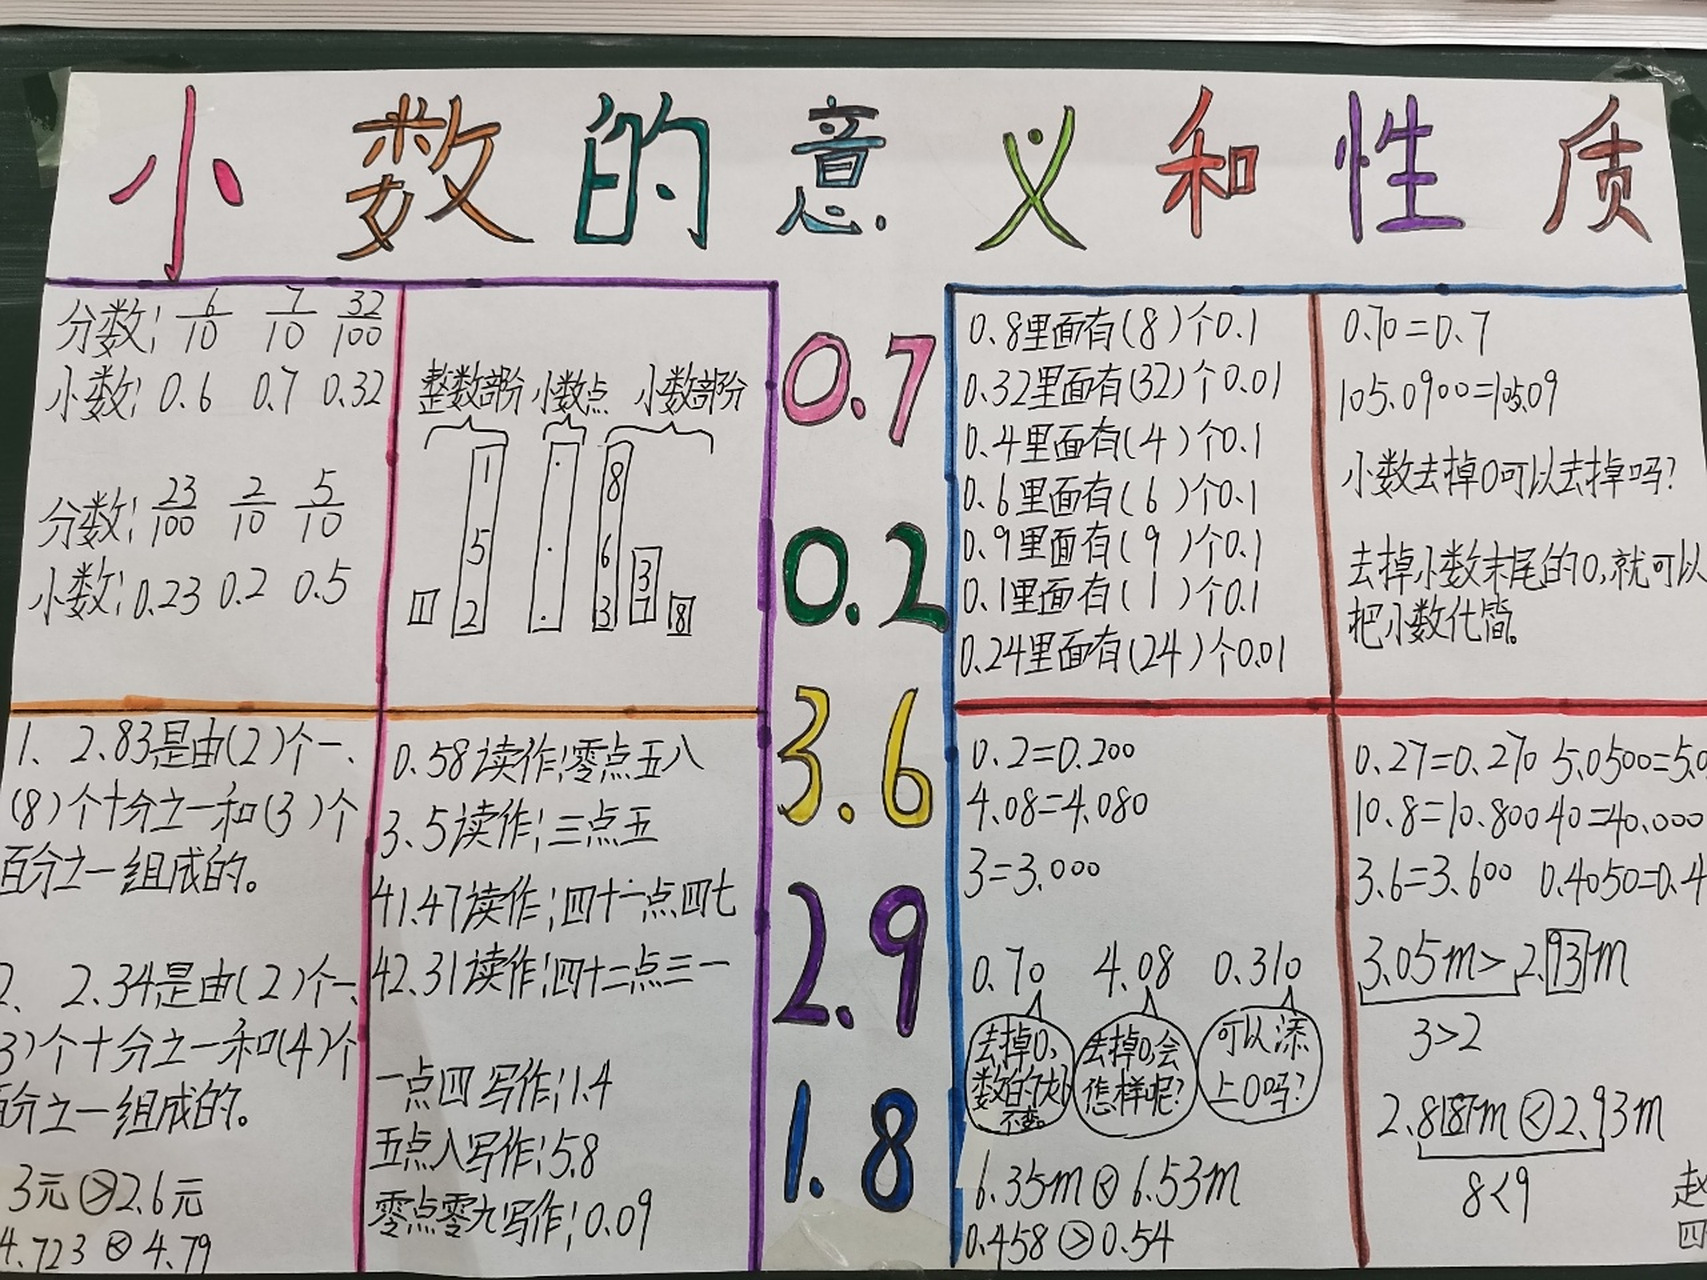 小数的意义和性质
分数: 6/10 7/10 32/100
小数: 0.6 0.7 0.32
分数: 23/100 2/10 5/10
小数: 0.23 0.2 0.5
整数部分 小数点 小数部分
1 . 8
5 . 6 3
11 2 . 3 7 8
1、2.83是由(2)个一、
(8)个十分之一和(3)个
百分之一组成的。
2、2.34是由(2)个一、
3)个十分之一和(4)个
百分之一组成的。
3元>2.6元
4.723<4.79
0.58读作:零点五八
3.5读作:三点五
41.47读作:四十一点四七
42.31读作:四十二点三一
一点四写作:1.4
五点八写作:5.8
零点零九写作:0.09
0.7
0.2
3.6
2.9
1.8
0.8里面有(8)个0.1
0.32里面有(32)个0.01
0.4里面有(4)个0.1
0.6里面有(6)个0.1
0.9里面有(9)个0.1
0.1里面有(1)个0.1
0.24里面有(24)个0.01
0.70=0.7
105.0900=105.09
小数去掉0可以去掉吗?
去掉小数末尾的0,就可以
把小数化简。
0.2=0.200
4.08=4.080
3=3.000
0.70 4.08 0.310
去掉0,
数的大小
不变。
去掉0,会
怎样呢?
可以添
上0吗?
6.35m<6.53m
0.458>0.54
0.27=0.270 5.0500=5.0
10.8=10.800 40=40.000
3.6=3.600 0.4050=0.4
3.05m>2.93m
3>2
2.87m<2.93m
8<9
赵
四